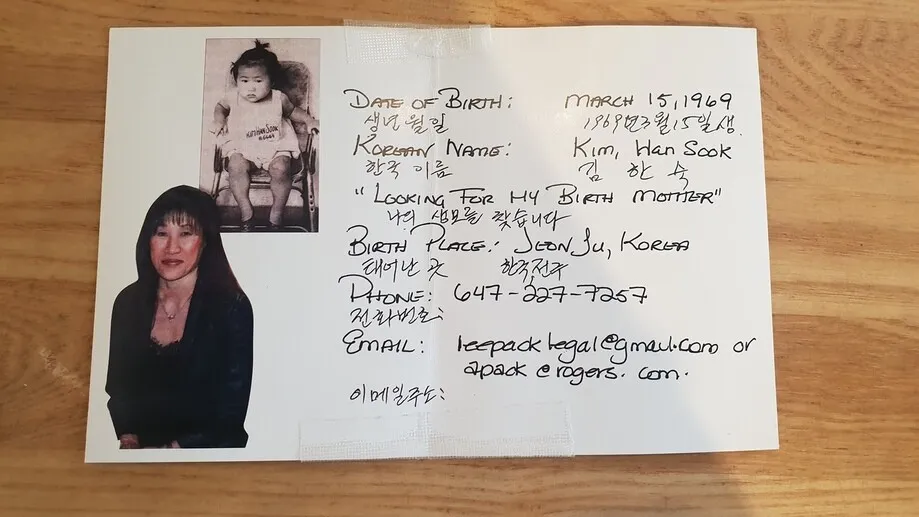 DATE OF BIRTH: MARCH 15, 1969
생년월일 1969년3월15일생.
KOREAN NAME: Kim, Han Sook
한국이름 김 한 숙
"LOOKING FOR MY BIRTH MOTHER"
나의 생모를 찾습니다
BIRTH PLACE: JEONJU, KOREA
태어난 곳 한국전주
PHONE: 647-227-7257
전화번호:
EMAIL: leepacklegal@gmail.com or
apack@rogers.com.
이메일주소:
KIM HAN SOOK